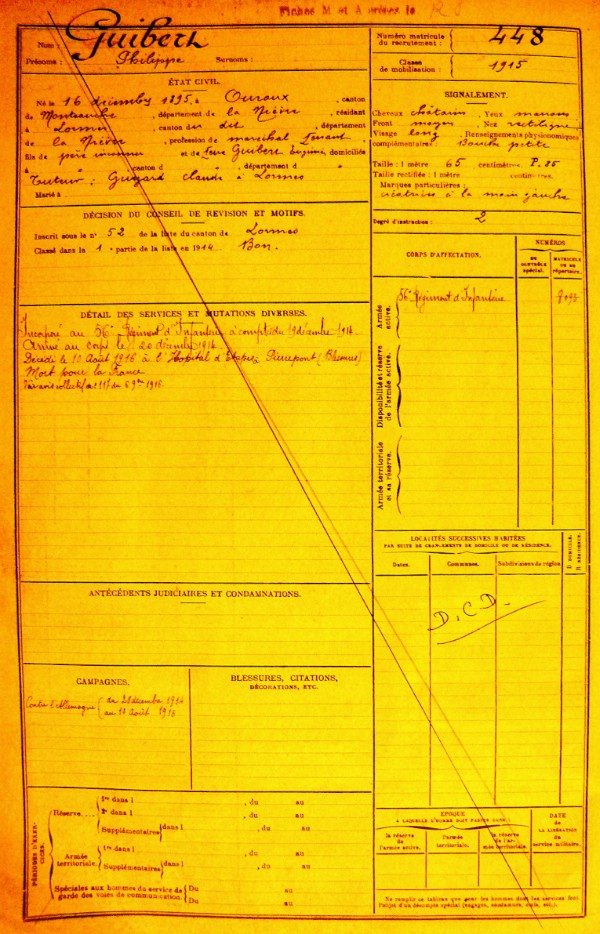 Fiches M et A crées le R S
Nom : Guibert
Prénoms : Philippe Surnoms :
Numéro matricule du recrutement : 448
Classe de mobilisation : 1915
ÉTAT CIVIL.
Né le 16 décembre 1895, à Ouroux, canton
de Montsauche, département de la Nièvre, résidant
à Lormes, canton des dit, département
de la Nièvre, profession de maréchal ferrant
fils de père inconnu et de feue Guibert Eugénie, domiciliés
à , canton d , département d
Tuteur : Guyard Claude à Lormes
Marié à
SIGNALEMENT.
Cheveux châtains, Yeux marrons
Front moyen, Nez rectiligne
Visage long, Renseignements physionomiques
complémentaires : Bouche petite
Taille : 1 mètre 65 centimètres. P. 85
Taille rectifiée : 1 mètre centimètres.
Marques particulières :
cicatrice à la main gauche
Degré d'instruction : 2
DÉCISION DU CONSEIL DE REVISION ET MOTIFS.
Inscrit sous le n° 52 de la liste du canton de Lormes
Classé dans la 1 partie de la liste en 1914. Bon.
DÉTAIL DES SERVICES ET MUTATIONS DIVERSES.
Incorporé au 56e Régiment d'Infanterie à compter du 19 décembre 1914.
Arrivé au corps le 20 décembre 1914
Décédé le 10 Août 1916 à l'Hôpital d'Etapes Pierrepont
Mort pour la France
CORPS D'AFFECTATION.
NUMÉROS
AU CONTRÔLE spécial.
MATRICULE OU AU répertoire.
Armée active.
56e Régiment d'Infanterie
Disponibilité et réserve de l'armée active.
Armée territoriale et sa réserve.
LOCALITÉS SUCCESSIVES HABITÉES
PAR SUITE DE CHANGEMENTS DE DOMICILE OU DE RÉSIDENCE.
Dates.
Communes.
Subdivisions de région.
D. domicile.
R. résidence.
D.C.D.
ANTÉCÉDENTS JUDICIAIRES ET CONDAMNATIONS.
CAMPAGNES.
Contre l'Allemagne
du 20 décembre 1914
au 10 Août 1916
BLESSURES, CITATIONS,
DÉCORATIONS, ETC.
PÉRIODES D'EXERCICES.
Réserve
1re dans l , du au
2e dans l , du au
Supplémentaires dans l , du au
Armée territoriale.
1re dans l , du au
Supplémentaires dans l , du au
Spéciales aux hommes du service de
garde des voies de communication.
Du au
Du au
ÉPOQUE
À LAQUELLE L'HOMME DOIT PASSER DANS :
la réserve de l'armée active.
l'armée territoriale.
la réserve de l'armée territoriale.
DATE de LA LIBÉRATION du service militaire.
Ne remplir ce tableau que pour les hommes dont les services font
l'objet d'un décompte spécial (engagés, condamnés, omis, etc.).